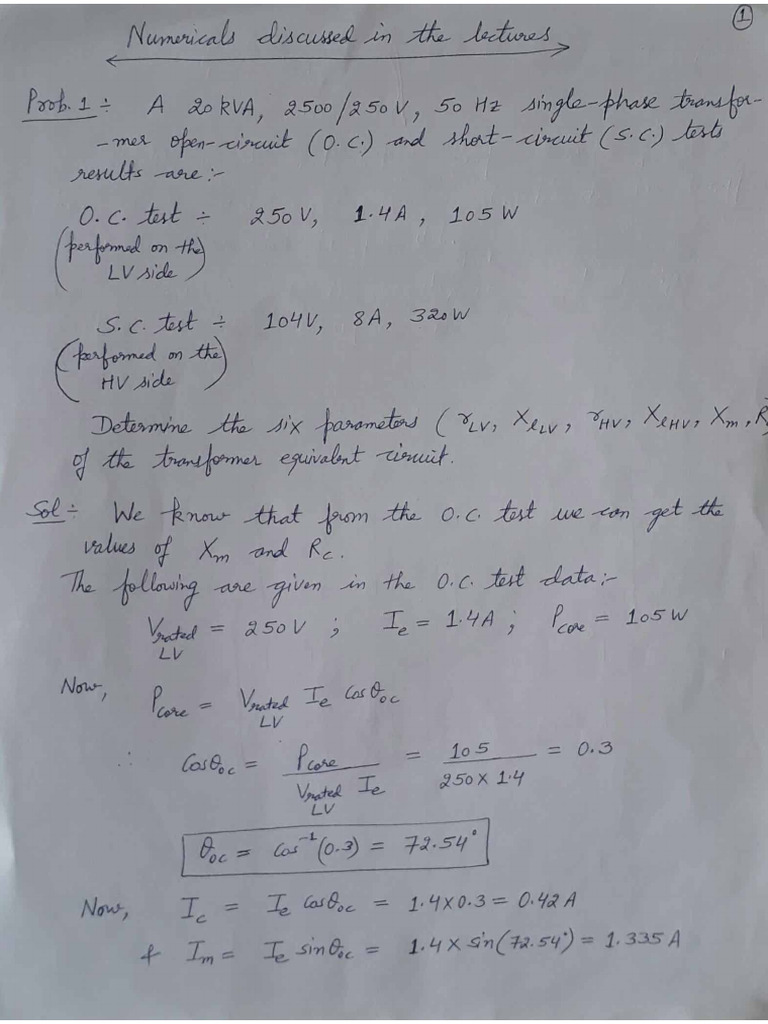 1
Numericals discussed in the lectures
Prob. 1 ÷ A 20 kVA, 2500/250 V, 50 Hz single-phase transfor-
-mer open-circuit (O.C.) and short-circuit (S.C.) tests
results are :-
O.C. test ÷ 250 V, 1.4 A, 105 W
(performed on the
LV side)
S.C. test ÷ 104V, 8A, 320W
(performed on the
HV side)
Determine the six parameters (r_LV, X_lLV, r_HV, X_lHV, X_m, R
of the transformer equivalent circuit.
Sol ÷ We know that from the O.C. test we can get the
values of X_m and R_c.
The following are given in the O.C. test data :-
V_rated LV = 250 V ; I_e = 1.4 A ; P_core = 105 W
Now, P_core = V_rated LV I_e Cosθ_oc
∴ Cosθ_oc = P_core / V_rated LV I_e = 105 / 250 × 1.4 = 0.3
θ_oc = Cos⁻¹(0.3) = 72.54°
Now, I_c = I_e Cosθ_oc = 1.4 × 0.3 = 0.42 A
& I_m = I_e sinθ_oc = 1.4 × sin(72.54°) = 1.335 A